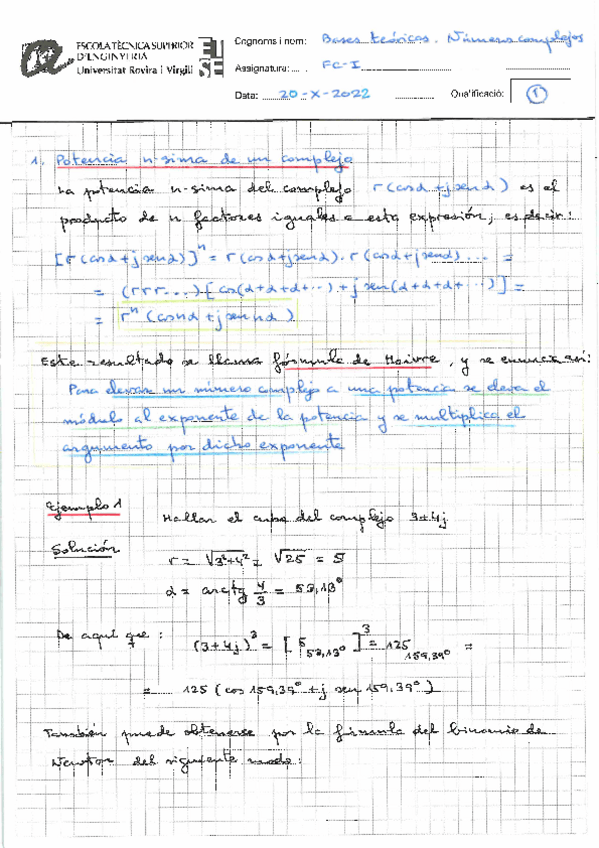 ESCOLA TÈCNICA SUPERIOR
D'ENGINYERIA
Universitat Rovira i Virgili
ETSE
Cognoms i nom: Bases teóricos. Números complejos
Assignatura: FC-I
Data: 20-X-2022 Qualificació: 1
1. Potencia n-sima de un complejo
La potencia n-sima del complejo r(cosα+jsenα) es el
producto de n factores iguales a esta expresión; es decir:
[r(cosα+jsenα)]ⁿ = r(cosα+jsenα).r(cosα+jsenα)... =
= (rrr...)[cos(α+α+α+...)+jsen(α+α+α+...)] =
= rⁿ(cosnα+jsennα)
Este resultado se llama fórmula de Moivre, y se enuncia así:
Para elevar un número complejo a una potencia se eleva el
módulo al exponente de la potencia y se multiplica el
argumento por dicho exponente
Ejemplo 1 Hallar el cubo del complejo 3+4j
Solución r = √3²+4² = √25 = 5
α = arctg 4/3 = 53,13°
De aquí que: (3+4j)³ = [5 53,13°]³ = 125 159,39° =
= 125 (cos 159,39° + j sen 159,39°)
También puede obtenerse por la fórmula del binomio de
Newton del siguiente modo: